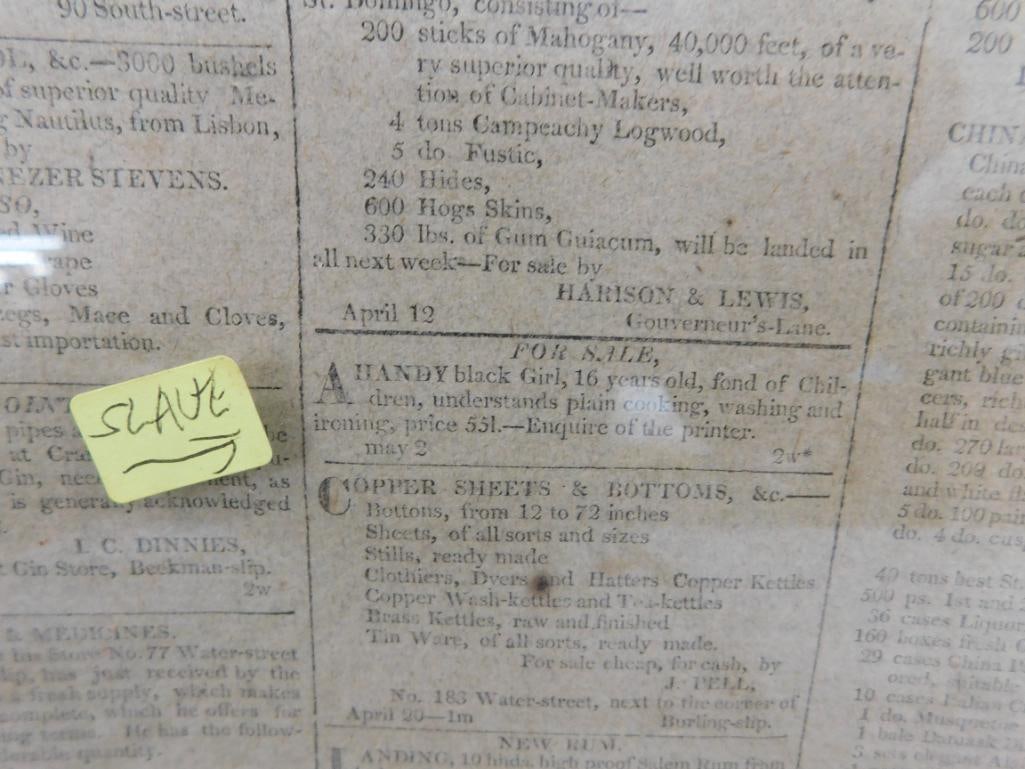 90 South-street.
&c.—3000 bushels
of superior quality Me-
Nautilus, from Lisbon,
by
NEZER STEVENS.
SO,
Wine
r Gloves
egs, Mace and Cloves,
st importation.
SLAVE
pipes
at
Gin,
is generally acknowledged
I. C. DINNIES,
Gin Store, Beekman-slip.
2w
& MEDICINES.
his Store No. 77 Water-street
has just received by the
a fresh supply, which makes
complete, which he offers for
ing terms. He has the follow-
derable quantity.
St. Domingo, consisting of—
200 sticks of Mahogany, 40,000 feet, of a ve-
ry superior quality, well worth the atten-
tion of Cabinet-Makers,
4 tons Campeachy Logwood,
5 do. Fustic,
240 Hides,
600 Hogs Skins,
330 lbs. of Gum Guiacum, will be landed in
all next week—For sale by
HARISON & LEWIS,
April 12 Gouverneur's-Lane.
FOR SALE,
A HANDY black Girl, 16 years old, fond of Chil-
dren, understands plain cooking, washing and
ironing, price 55l.—Enquire of the printer.
may 2 2w*
COPPER SHEETS & BOTTOMS, &c.—
Bottons, from 12 to 72 inches
Sheets, of all sorts and sizes
Stills, ready made
Clothiers, Dyers and Hatters Copper Kettles
Copper Wash-kettles and Tea-kettles
Brass Kettles, raw and finished
Tin Ware, of all sorts, ready made.
For sale cheap, for cash, by
J. PELL,
No. 183 Water-street, next to the corner of
April 20—1m Burling-slip.
NEW RUM.
LANDING, 10 hhds. high proof Salem Rum from
600
200
CHIN
China
each
do.
sugar
15 do.
of 200
containin
richly gi
gant blue
cers, rich
half in
do. 270
do. 209 do
and white
5 do. 100 pai
do. 4 do.
40 tons best
500 ps. 1st and
36 cases Liquor
160 boxes fresh
29 cases China
ored, suitable
10 cases Italian
1 do. Musquetoe
1 bale Damask
3 sets elegant